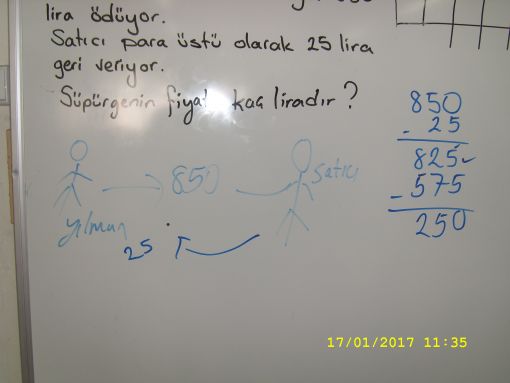 lira ödüyor.
Satıcı para üstü olarak 25 lira
geri veriyor.
Süpürgenin fiyatı kaç liradır?
850
- 25
825
- 575
250
850
satıcı
Yılmaz
25
17/01/2017 11:35